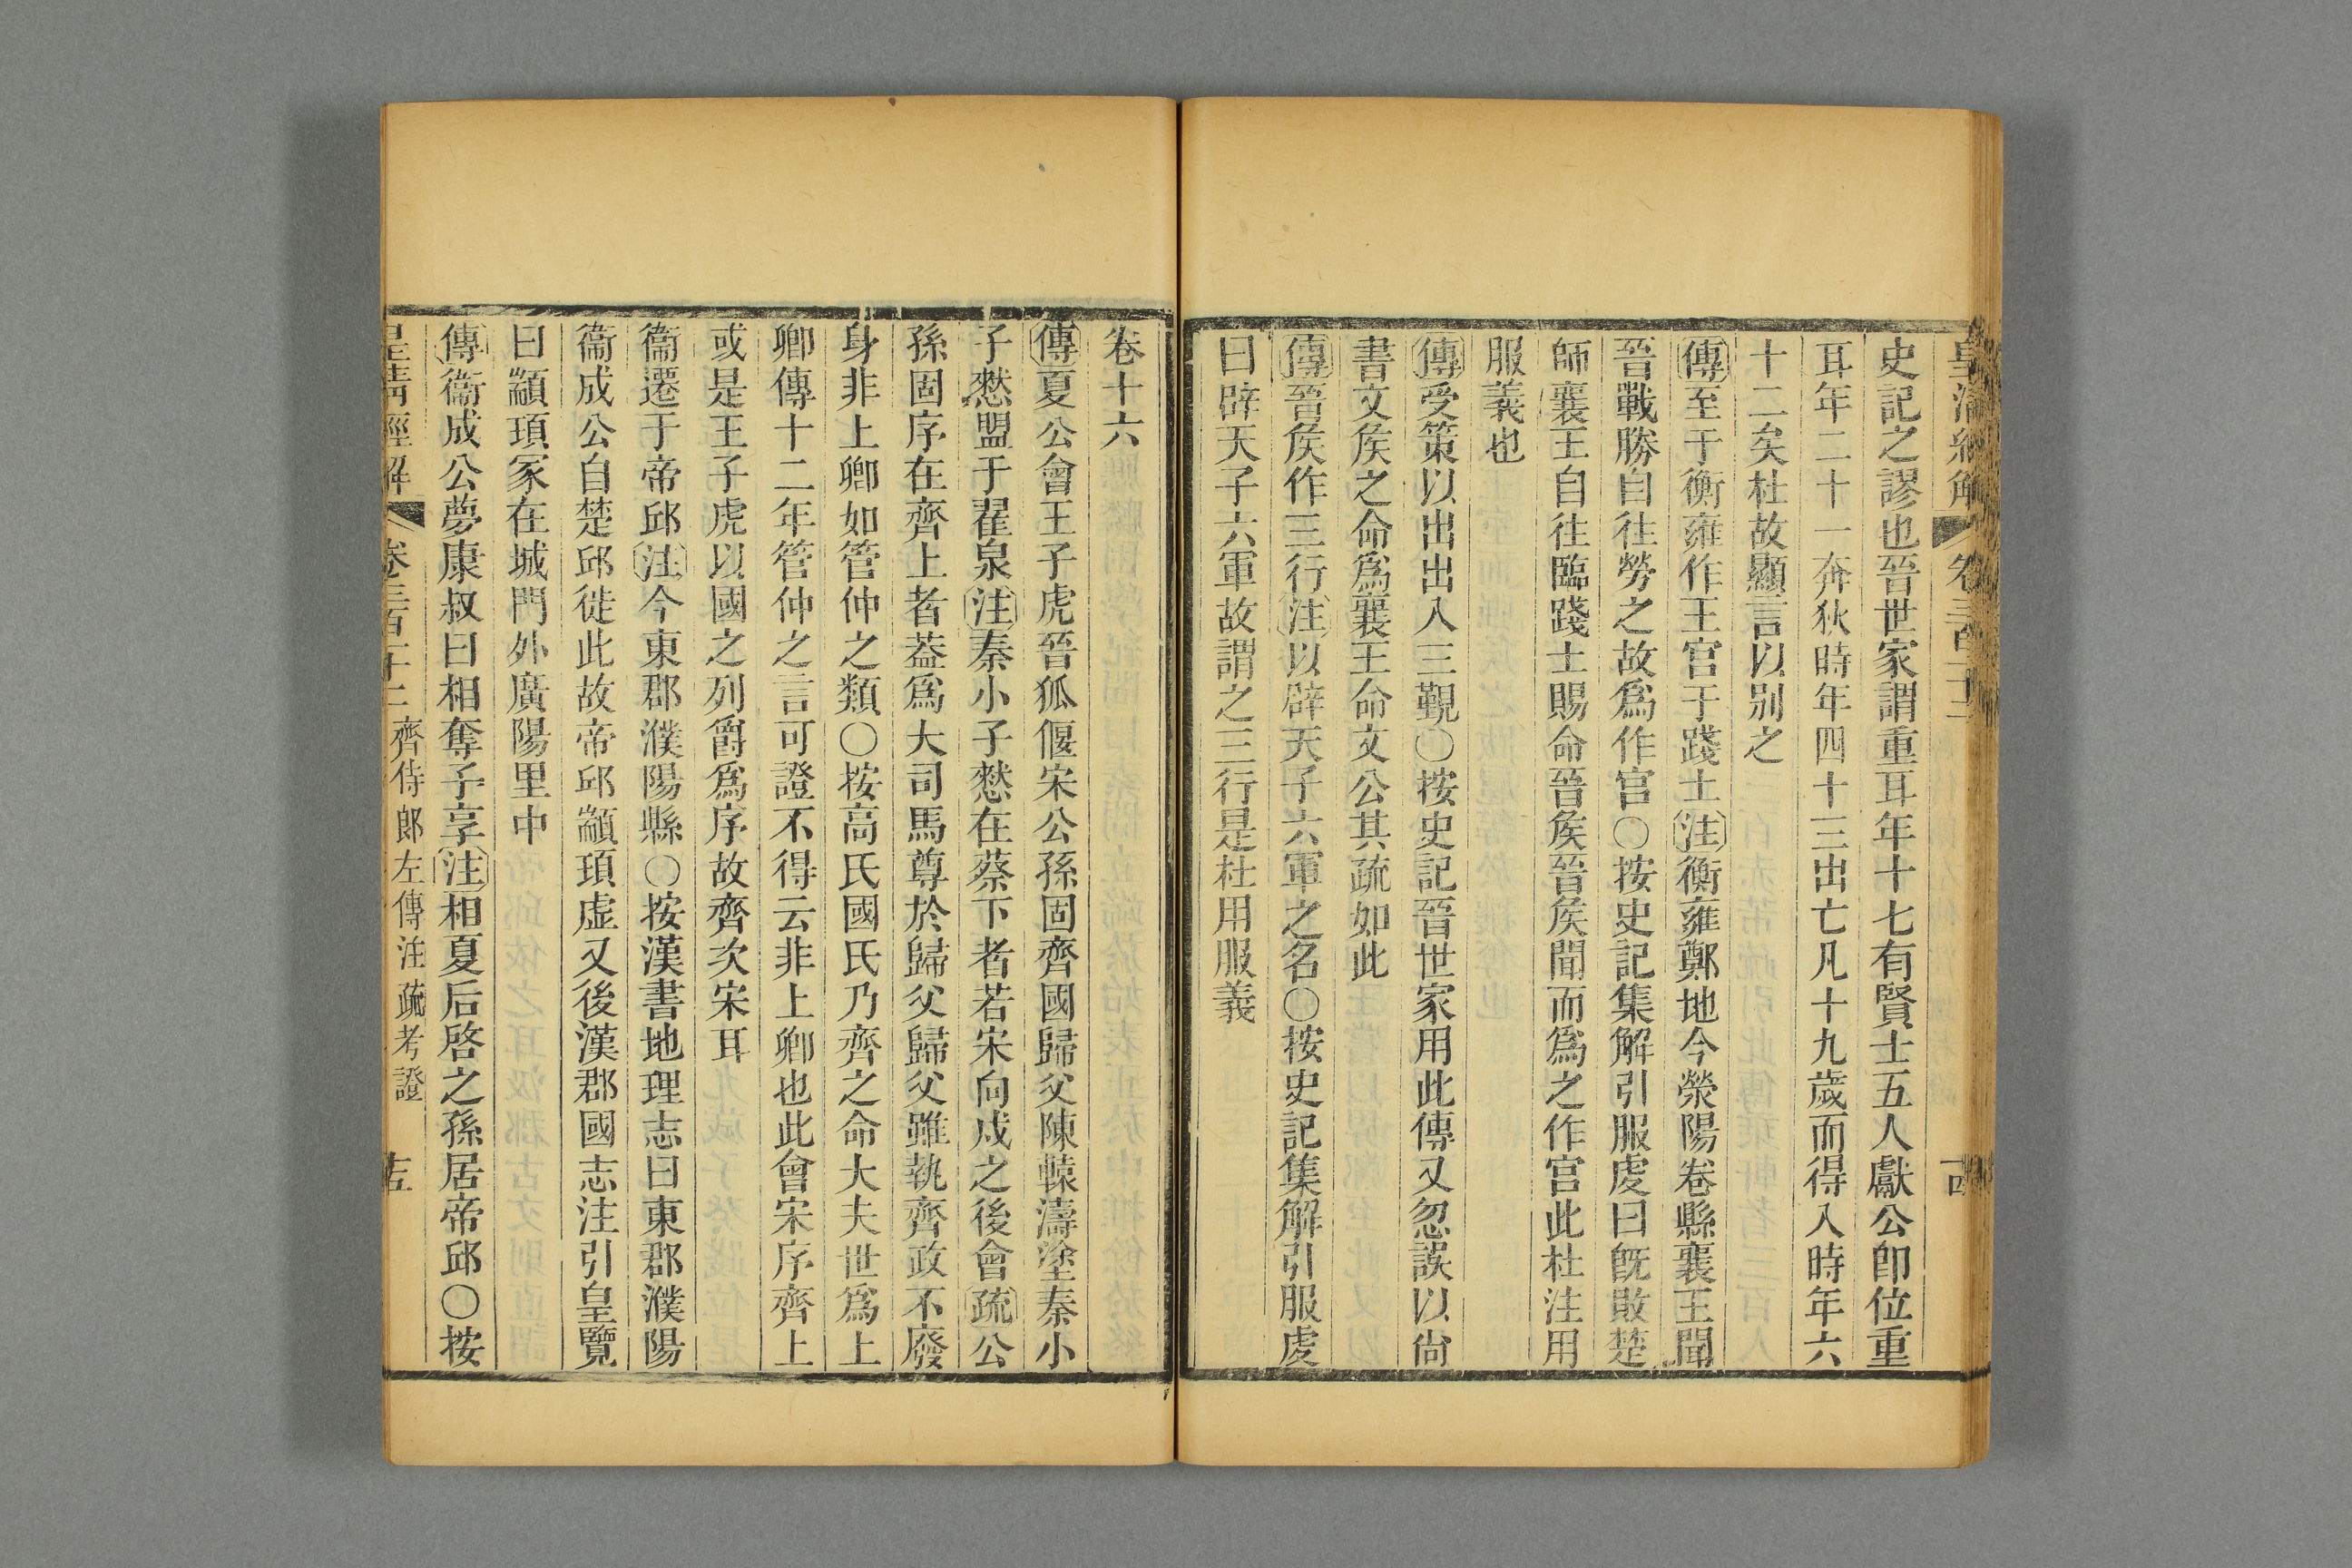 皇清經解 卷三百十二 十四
史記之謬也晉世家謂重耳年十七有賢士五人獻公卽位重
耳年二十一奔狄時年四十三出亡凡十九歲而得入時年六
十二矣杜故顯言以别之
傳至于衡雍作王宮于踐土注衡雍鄭地今滎陽卷縣襄王聞
晉戰勝自往勞之故爲作宮〇按史記集解引服虔曰旣敗楚
師襄王自往臨踐土賜命晉矦晉矦聞而爲之作宮此杜注用
服義也
傳受策以出出入三覲〇按史記晉世家用此傳又忽誤以尙
書文矦之命爲襄王命文公其疏如此
傳晉矦作三行注以辟天子六軍之名〇按史記集解引服虔
曰辟天子六軍故謂之三行是杜用服義
卷十六
傳夏公會王子虎晉狐偃宋公孫固齊國歸父陳轅濤塗秦小
子憗盟于翟泉注秦小子憗在蔡下者若宋向戍之後會疏公
孫固序在齊上者葢爲大司馬尊於歸父歸父雖執齊政不廢
身非上卿如管仲之類〇按高氏國氏乃齊之命大夫世爲上
卿傳十二年管仲之言可證不得云非上卿也此會宋序齊上
或是王子虎以國之列爵爲序故齊次宋耳
衞遷于帝邱注今東郡濮陽縣〇按漢書地理志曰東郡濮陽
衞成公自楚邱徙此故帝邱顓頊虛又後漢郡國志注引皇覽
曰顓頊冢在城門外廣陽里中
傳衞成公夢康叔曰相奪予享注相夏后啓之孫居帝邱〇按
皇淸經解 卷三百十二 齊侍郎左傳注疏考證 十五